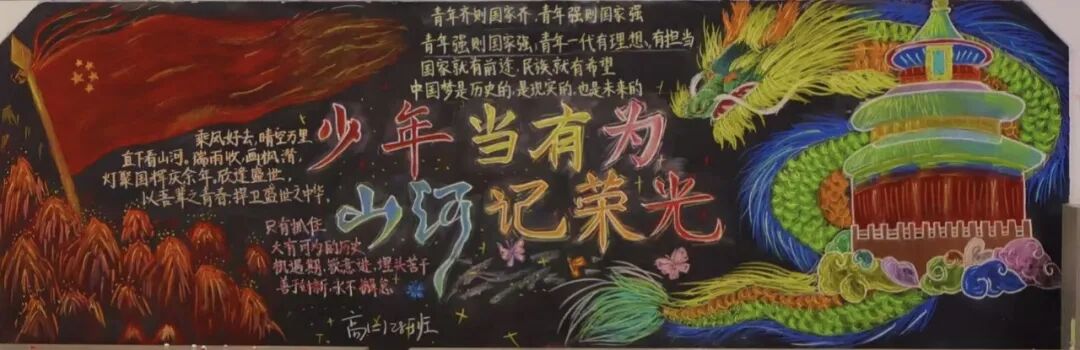 青年齐则国家齐,青年强则国家强
青年强则国家强,青年一代有理想、有担当
国家就有前途,民族就有希望
中国梦是历史的,是现实的,也是未来的
少年当有为
山河记荣光
乘风好去,晴空万里
直下看山河,雨收,画
庆余年,欣逢盛世,
以吾辈之青春,捍卫盛世之中华,
只有抓住
大有可为的历史
机遇期,锐意进,埋头苦干
善于创新,永不懈怠
高班